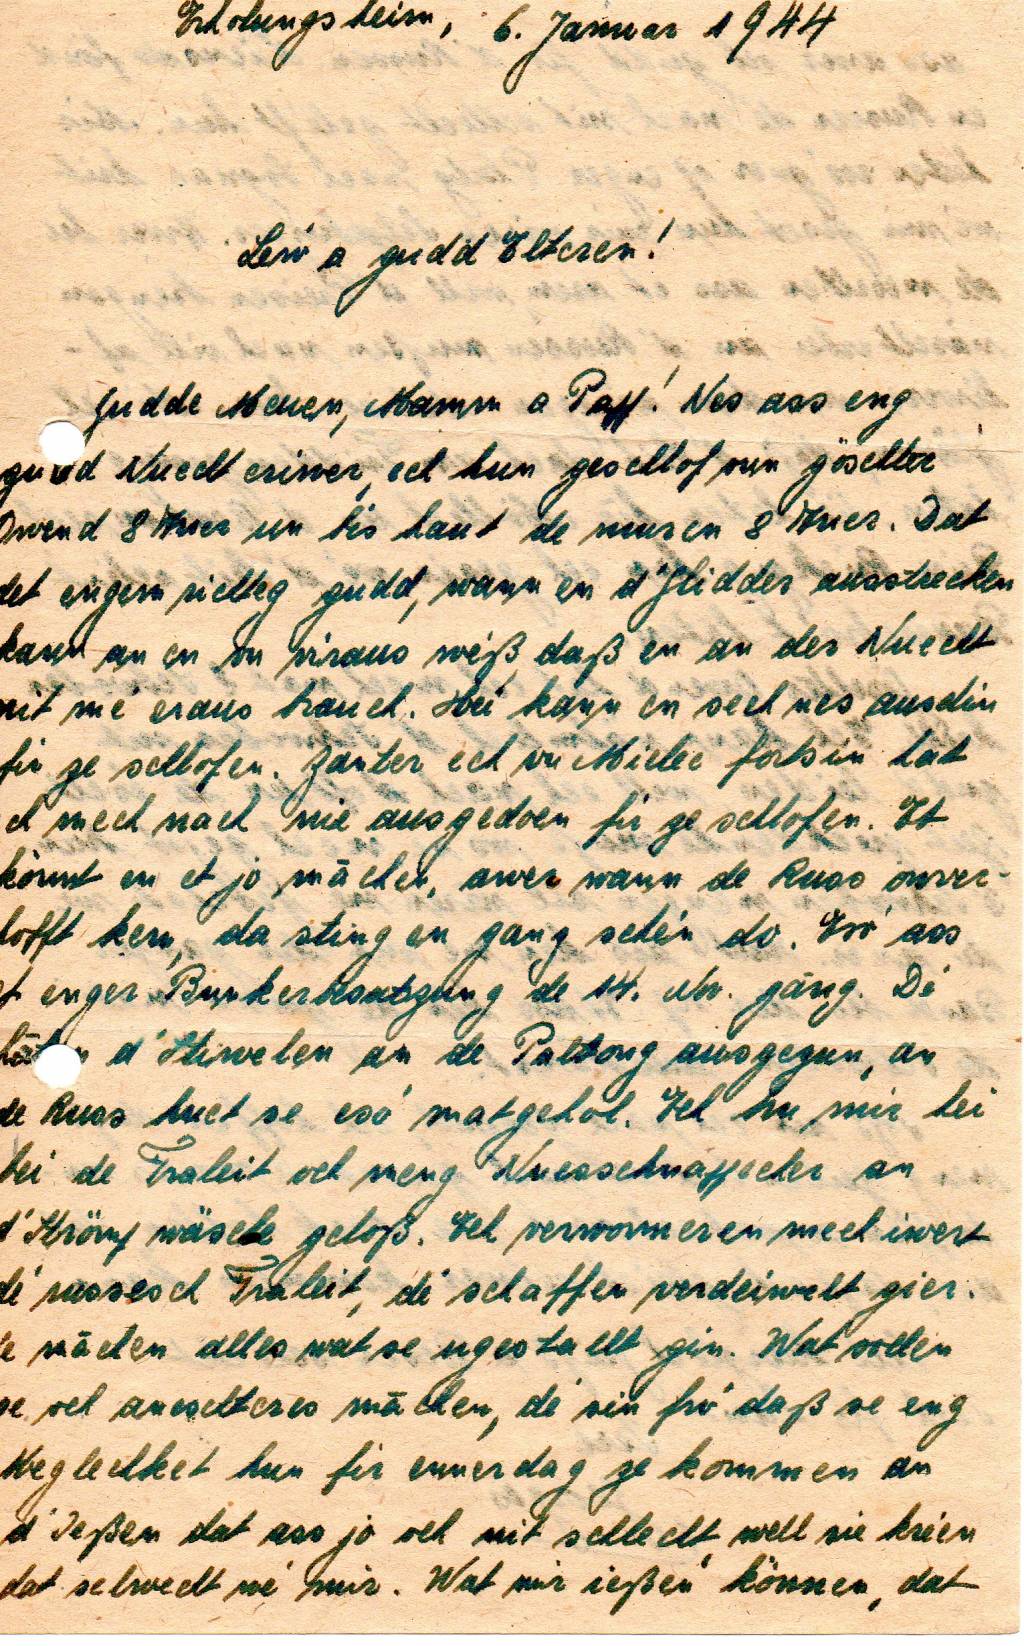 Erholungsheim, 6. Januar 1944
Léiw a gudd Elteren!
Gudde Meuen, Mamm a Papp! Nes ass eng
gudd Nuecht eriwer, ech hun geschlof vun göschter
Owend 8 Auer un bis haut de muren 8 Auer. Dat
det engem richteg gudd, wann en d'Glidder ausstrecken
kann an en vu viraus wéß daß en an der Nuecht
nit mé eraus brauch. Hei kann en sech nes ausdin
fir ze schlofen. Zanter ech vu Mielec fortsin hat
ech mech nach nie ausgedoen fir ze schlofen. Et
könnt en et jo mächen, awer wann de Russ onver-
hofft kem, da sting en gang schéin do. Esó ass
et enger Bunkerbesatzung de 14. Nov. gäng. Dé
häten d'Stiwelen an de Paltong ausgezun, an
de Russ huet se esó matgehol. Ech hu mir hei
bei de Fraleit och meng Nuesschnappecher an
d'Strömp wäsche geloß. Ech verwonneren mech iwert
dé russesch Fraleit, dé schaffen verdeiwelt gier.
Se mächen alles wat se ugestallt gin. Wat sollen
se och aneschteres mächen, dé sin fró daß se eng
Méglechket hun fir ennerdag ze kommen an
d'Ießen dat ass jo och nit schlecht well sie kréien
dat selwecht wé mir. Wat mir ießen können, dat